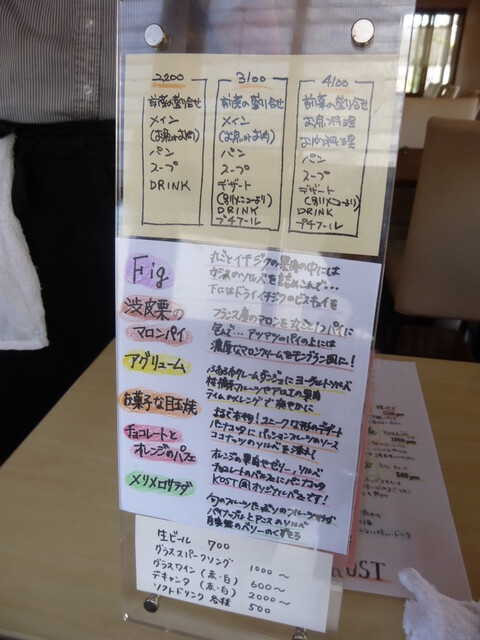 2200
前菜の盛り合せ
メイン
(お魚orお肉)
パン
スープ
DRINK
3100
前菜の盛り合せ
メイン
(お魚orお肉)
パン
スープ
デザート
(別メニューより)
DRINK
プチフール
4100
前菜の盛り合せ
お魚料理
お肉料理
パン
スープ
デザート
(別メニューより)
DRINK
プチフール
Fig
丸ごとイチジクの果肉の中には
のソルベを詰めこんで…
下にはドライイチジクのビスキュイを
渋皮栗の
マロンパイ
フランス産のマロンを丸ごと1つパイに
包んで… アツアツのパイの上には
濃厚なマロンクリームをモンブラン風に!
アグリューム
ふわふわクレームダンジュにヨーグルトソルベ
柑橘系フルーツやアロエの果肉
ライムのメレンゲで爽やかに
お菓子な目玉焼
まるで本物! ユニークな形のデザート
パンナコッタにパッションフルーツのソース
ココナッツのソルベを添えて
チョコレートと
オレンジのパフェ
オレンジの果肉やゼリー、ソルベ
チョコレートのパルフェにパンナコッタ
KOST風オリジナルパフェです!
メリメロサラダ
旬のフルーツたっぷりのフルーツサラダ
パイナップルとアニスのソルベ
自家製のベリーのくずもち
生ビール 700
グラススパークリング 1000〜
グラスワイン (赤・白) 600〜
デキャンタ (赤・白) 2000〜
ソフトドリンク 各種 500